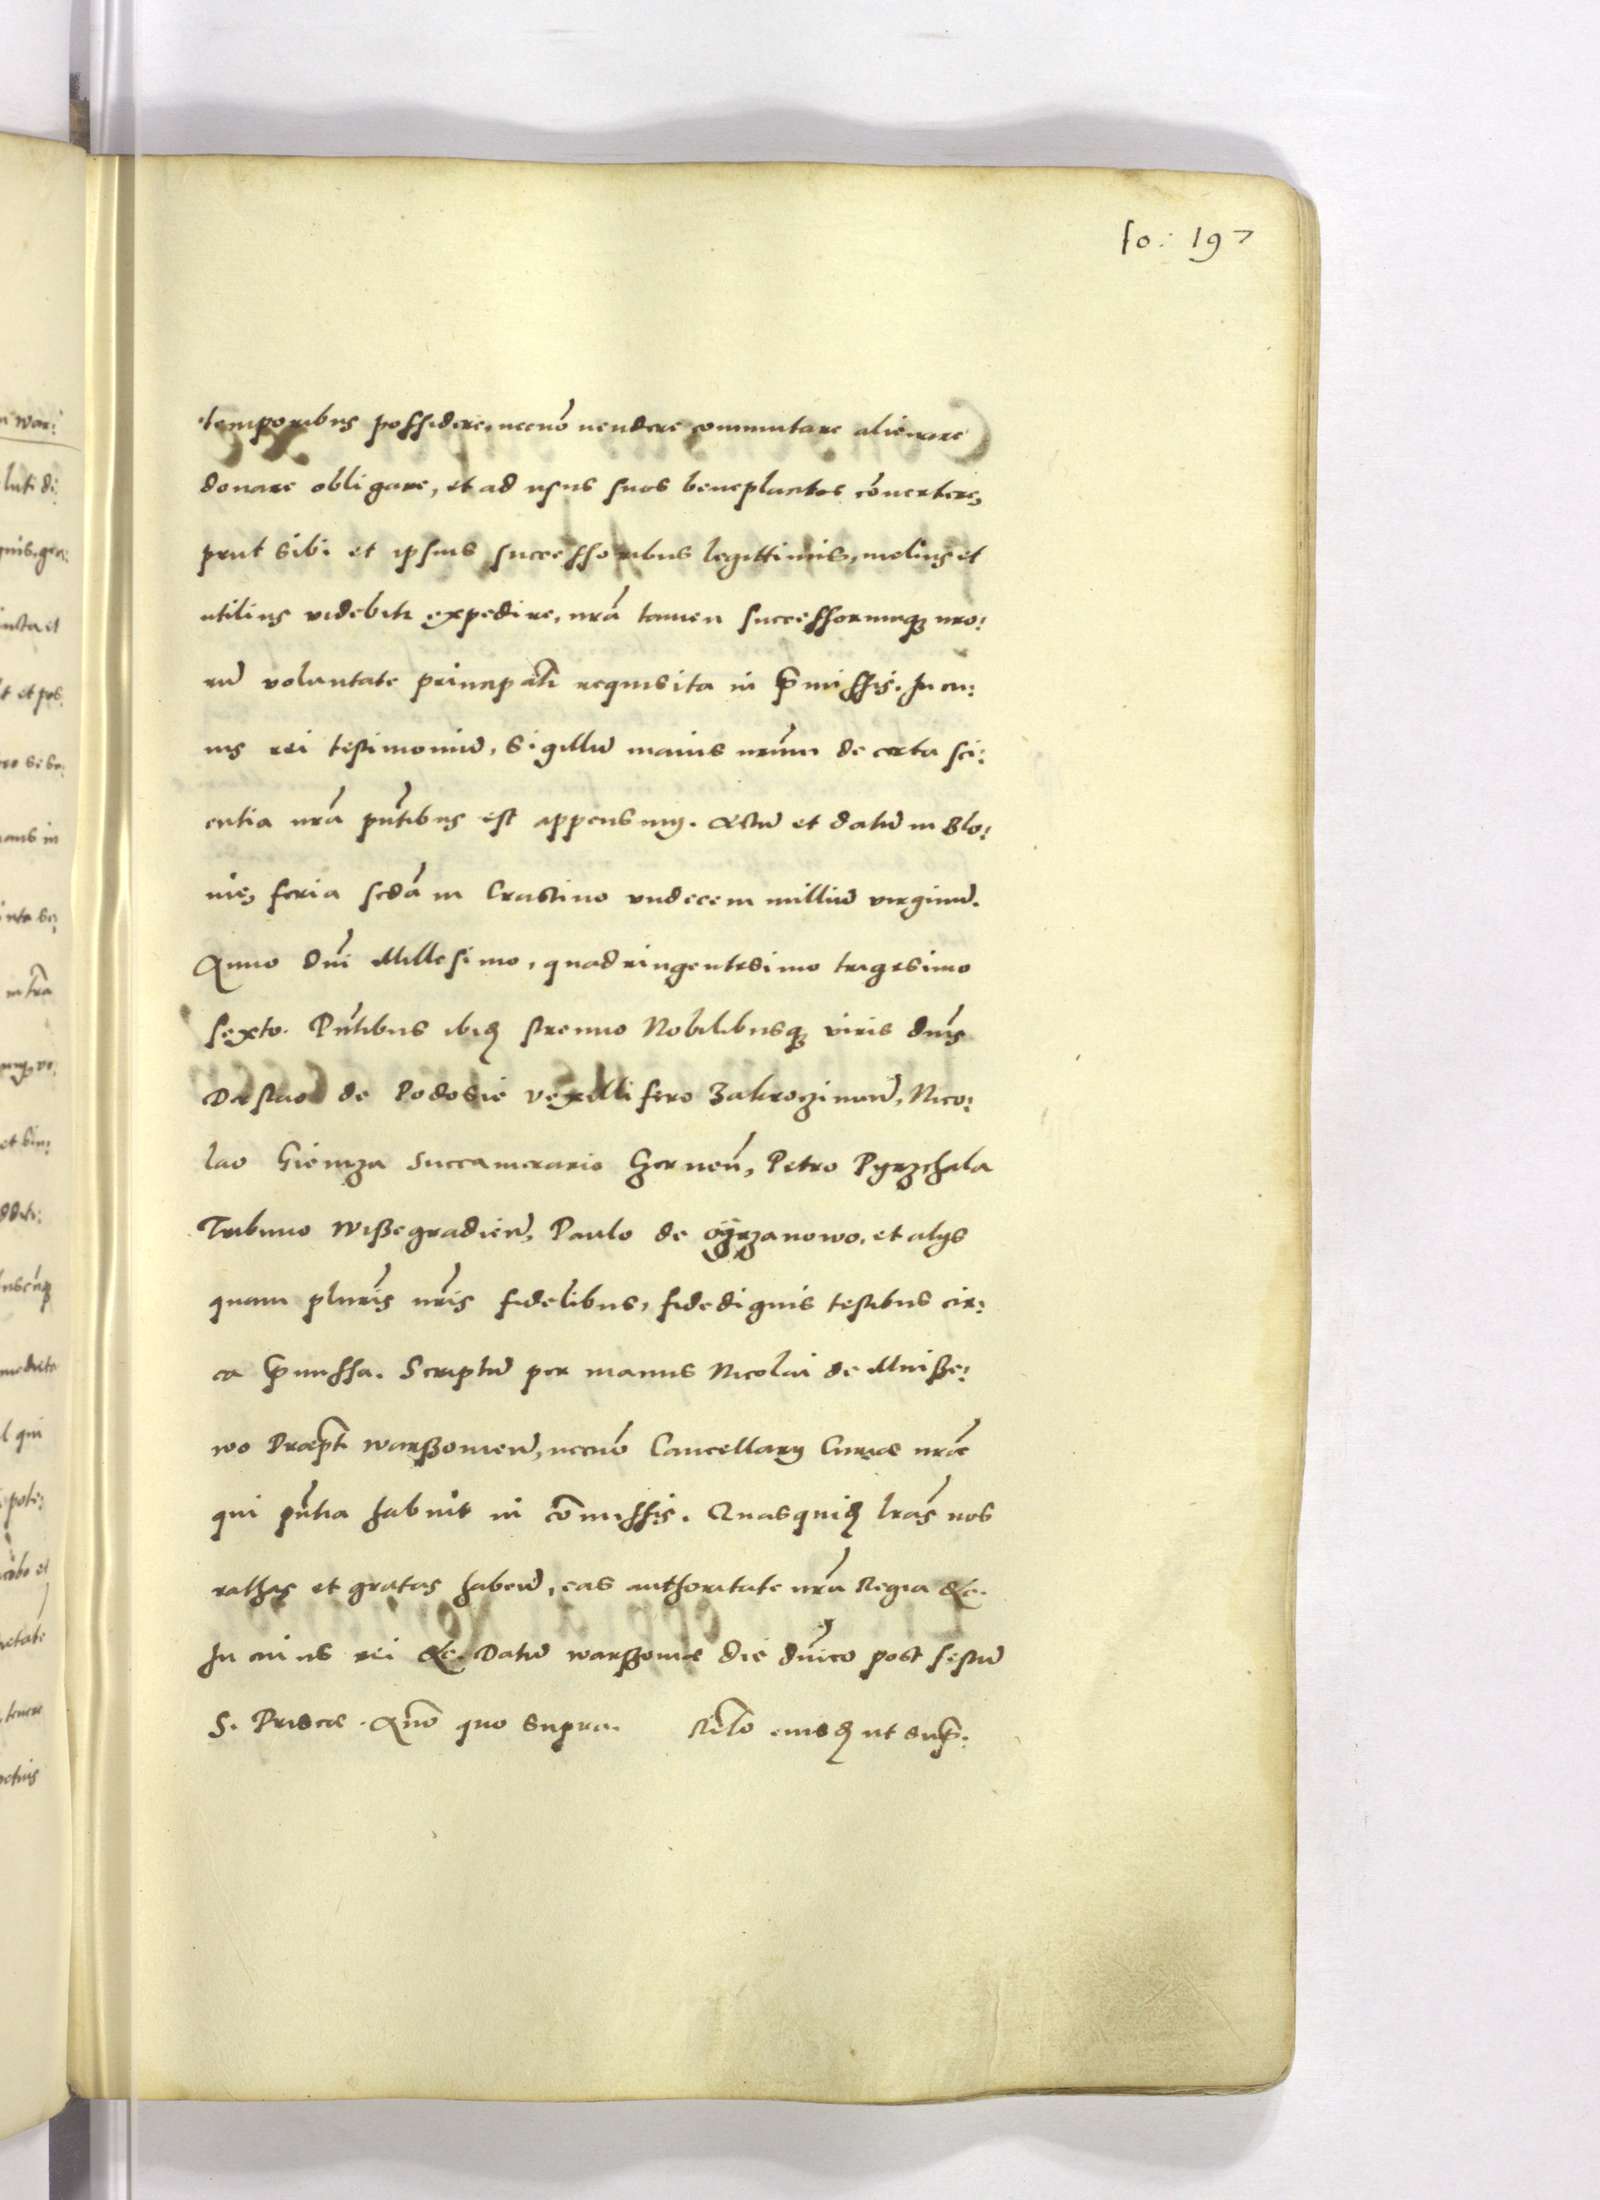 fo: 197
temporibus possidere, necnõ uendere commutare alienare
donare obligare, et ad usus suos beneplacitos cõuertere,
prut sibi et ipsius successoribus legittimis, melius et
utilius videbitr expedire, nrã tamen successorumq; nro:
rũ voluntate principali requisita in p̃missis. In cu:
ius rei testimoniũ, sigillum maius nrũm de certa sci:
entia nrã pñtibus est appensum. Actũ et datũ in Blo:
nie, feria scdã in Crastino vndecem milliũ virginũ.
Anno Dñi Millesimo, quadringentesimo trigesimo
sexto. Pñtibus ibid. strenuo Nobilibusq; viris dñis
Dasstao de Podosie vexillifero Zakroziñ, Nico:
lao Giemza Succamerario Czerneñ, Petro Pyrzchala
Tribuno Wißegradieñ, Paulo de oÿrzanowo, et alys
quam plurĩs nrĩs fidelibus, fide dignis testibus cir:
ca p̃missa. Scriptũ per manus Nicolai de Mniße:
wo Præpti Warßouieñ, necnõ Cancellary Curiæ nrae
qui pñtia habuit in cõmissis. Quasquid. lrãs nos
rathas et gratas habeñ, eas authoritate nrã Regia &c.
In cuius rei &c. Datũ Warßouiæ die dñico post festũ
S. Priscæ. Anõ quo supra. Rẽlo eiusd. ut sup̃.